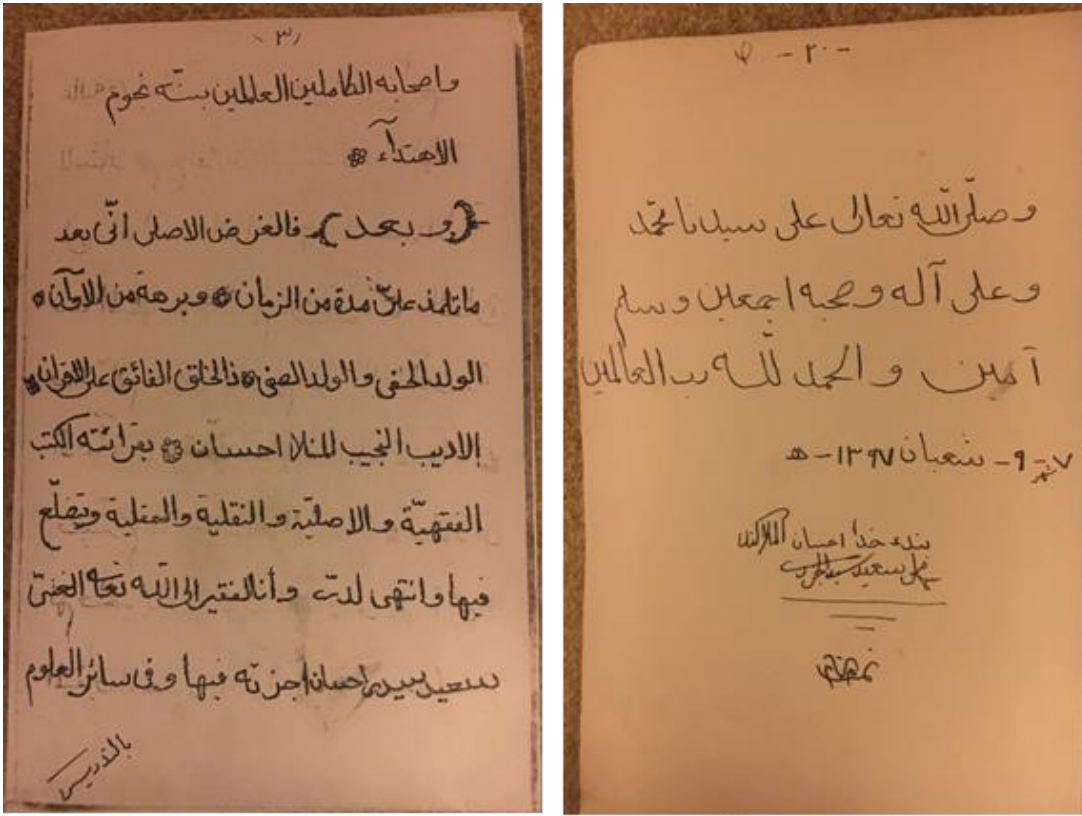 ٣
واصحابه الكاملين العالمين بسنته نجوم
الاهتدآء
﴿وبعد﴾ فالغرض الاصلى انّى بعد
ما تلمذ علىّ مدة من الزمان وبرهة من الاوآن
الولد الحفى والولد الصفى ذا الخلق الفائق على الاقران
الاديب النجيب الملا احسان بقرائته الكتب
الفقهيّة والاصليّة والنقلية والعقلية وتضلّع
فيها وانتهى لدى وأنا الفقير الى اللّه تعالى الغنىّ
سعيد سيدا احسان أجزته فيها وفى سائر العلوم
بالتدريس
- ٢٠ -
وصلّى اللّه تعالى على سيدنا محمّد
وعلى آله وصحبه اجمعين وسلم
آمين والحمد للّه رب العالمين
٧ شهر - ٩ - شعبان ١٣٩٧ - ه
بنده خدا احسان
سعيد